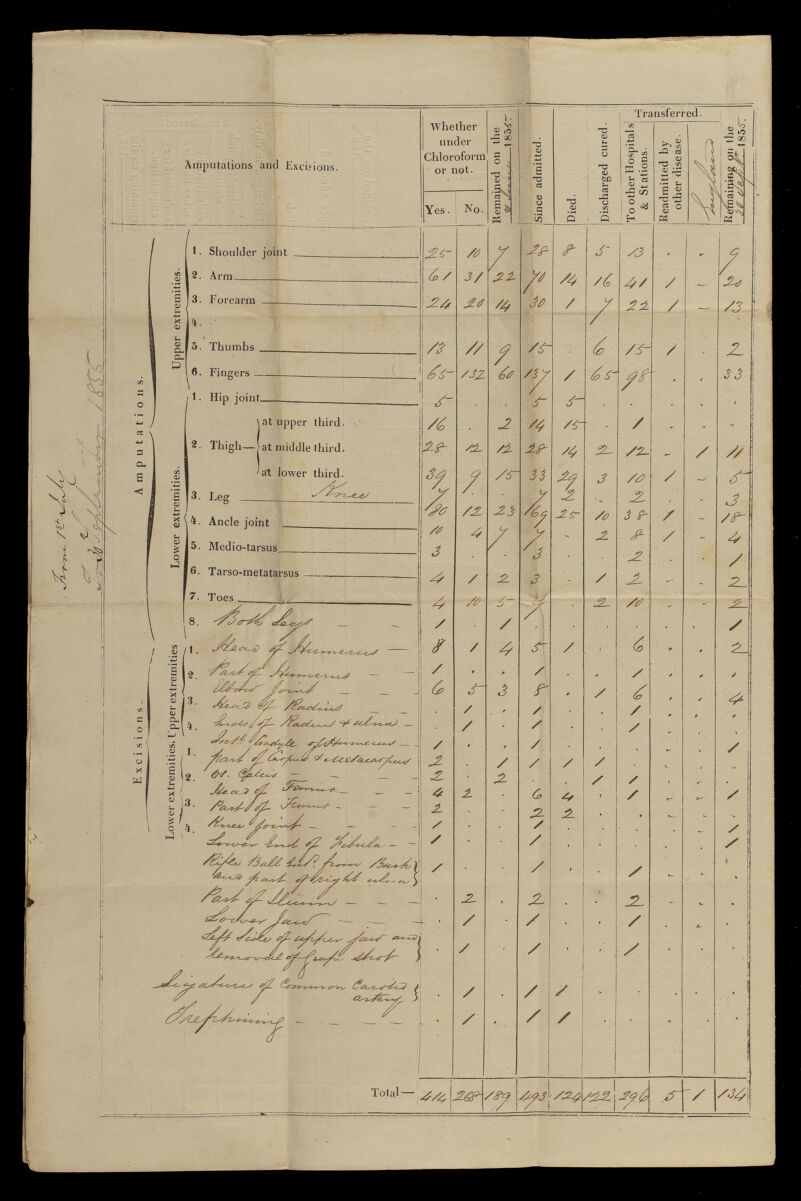 From 1st July
to 30 September 1855
Amputations and Excisions. Whether under Chloroform or not. Yes. No. Remained on the 1855. Since admitted. Died. Discharged cured. Transferred. To other Hospitals & Stations. Readmitted by other disease. England Remaining on the 30 Septr. 1855.
Amputations.
Upper extremities.
1. Shoulder joint 25 10 7 28 8 5 13 . . 9
2. Arm 61 31 22 70 14 16 41 1 - 20
3. Forearm 24 20 14 30 1 7 22 1 - 13
4.
5. Thumbs 13 11 9 15 . 6 15 1 . 2
6. Fingers 65 132 60 137 1 65 98 . . 33
Lower extremities.
1. Hip joint 5 . . 5 5 . . . . .
2. Thigh— at upper third. 16 . 2 14 15 - 1 . . .
at middle third. 28 12 12 28 14 2 12 - 1 11
at lower third. 39 9 15 33 29 3 10 1 - 5
Knee 7 . . 7 2 . 2 . . 3
3. Leg 80 12 23 169 25 10 38 1 - 18
4. Ancle joint 10 4 7 7 - 2 8 1 - 4
5. Medio-tarsus 3 . . 3 . . 2 . . 1
6. Tarso-metatarsus 4 1 2 3 . 1 2 - . 2
7. Toes 4 10 5 9 . 2 10 . - 2
8. Both Legs 1 . 1 . . . . . . 1
Excisions.
Upper extremities
1. Head of Humerus 8 1 4 5 1 . 6 . . 2
2. Part of Humerus 1 . . 1 . . 1 . . .
Elbow Joint 6 5 3 8 . 1 6 . . 4
3. Head of Radius . 1 . 1 . . 1 . . .
4. Ends of Radius & ulna . 1 . 1 . . 1 . . .
Intl. Condyle of Humerus 1 . . 1 . . . . . 1
Lower extremities.
1. part of Carpus & Metacarpus 2 . 1 1 1 1 . . . .
2. Os. Calcis 2 . 2 . . 1 1 . . .
Head of Femur 4 2 . 6 4 . 1 - - 1
3. Part of Femur 2 . . 2 2 . . . . .
4. Knee joint 1 . . 1 . . . . . 1
Lower End of Fibula 1 . . 1 . . . . . 1
Rifle Ball Extd. from Back
and part of right ulna 1 . . 1 . . 1 . . .
Part of Ilium . 2 . 2 . . 2 . . .
Lower Jaw . 1 . 1 . . 1 . . .
Left Side of upper jaw and
removal of Grape Shot . 1 . 1 . . 1 . . .
Ligature of Common Carotid
artery . 1 . 1 1 . . . . .
Trephining . 1 . 1 1 . . . . .
Total— 414 268 189 493 124 122 296 5 1 134